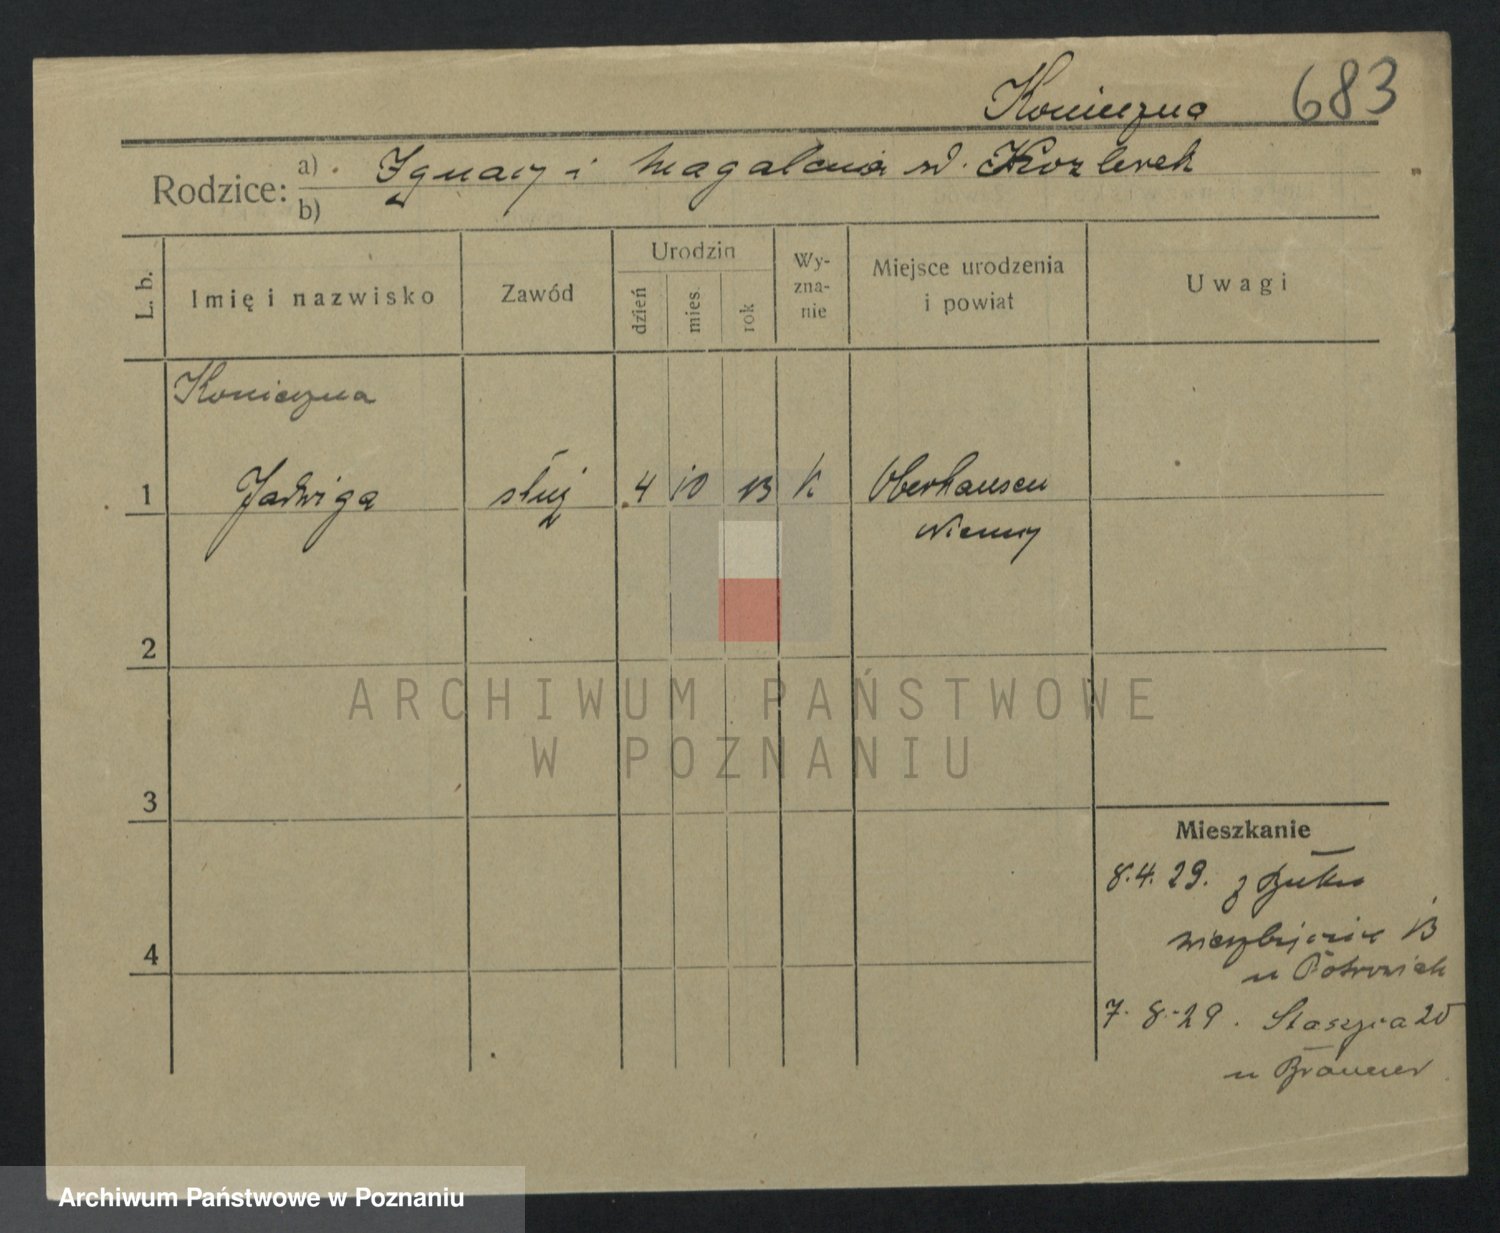 Konieczna 683
Rodzice: a) Ignacy i Magalena
b)
L. b. Imię i nazwisko Zawód Urodzin dzień mies. rok Wy-zna-nie Miejsce urodzenia i powiat Uwagi
Konieczna
1 Jadwiga służ 4 10 13 k Oberhausen
Niemcy
2
ARCHIWUM PAŃSTWOWE
W POZNANIU
3
Mieszkanie
8.4.29. z Buku
4 13
u
7.8.29. Staszica 20
u
Archiwum Państwowe w Poznaniu